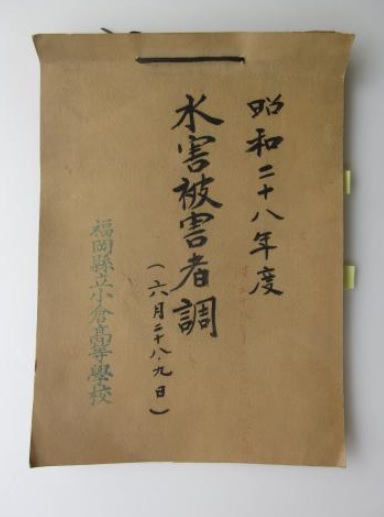 昭和二十八年度
水害被害者調
(六月二十八・九日)
福岡縣立小倉高等學校